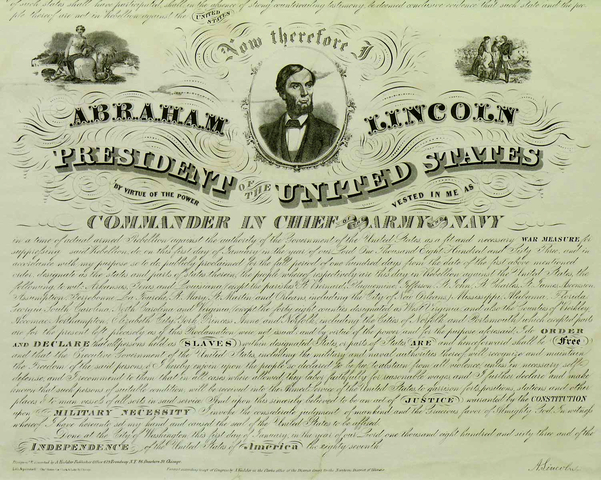 of such states shall have participated, shall in the absence of strong countervailing testimony be deemed conclusive evidence that such state and the peo-
ple thereof are not in Rebellion against the UNITED STATES
Now therefore I
ABRAHAM LINCOLN
PRESIDENT OF THE UNITED STATES
BY VIRTUE OF THE POWER VESTED IN ME AS
COMMANDER IN CHIEF OF THE ARMY AND NAVY
in a time of actual armed Rebellion against the authority of the Government of the United States as a fit and necessary WAR MEASURE for
suppressing said Rebellion, do on this first day of January in the year of our Lord One Thousand Eight Hundred and Sixty Three, and in
accordance with my purpose so to do, publicly proclaimed for the full period of one hundred days from the date of the first above mentioned
order, designate as the states and parts of States therein, the people whereof respectively are this day in Rebellion against the United States, the
following, to wit: Arkansas, Texas and Louisiana, except the parishes of St. Bernard, Plaquemines, Jefferson, St. John, St. Charles, St. James, Ascension
Assumption, Terrebonne, La Fourche, St. Mary, St. Martin and Orleans, including the City of New Orleans, Mississippi, Alabama, Florida
Georgia, South Carolina, North Carolina and Virginia, except the forty eight counties designated as West Virginia, and also the Counties of Berkley
Accomac, Northampton, Elizabeth City, York, Princess Anne and Norfolk, including the Cities of Norfolk and Portsmouth, which excepted parts
are for the present left precisely as if this Proclamation were not issued, and by virtue of the power and for the purpose aforesaid I do ORDER
AND DECLARE that all persons held as SLAVES within designated States or parts of States ARE and henceforward shall be Free
and that the Executive Government of the United States, including the military and naval authorities thereof, will recognize and maintain
the Freedom of the said persons, & I hereby enjoin upon the people so declared to be free to abstain from all violence unless in necessary self
defence, and I recommend to them that in all cases when allowed they labor faithfully for reasonable wages, and I further declare and make
known that such persons of suitable condition will be received into the armed service of the United States to garrison forts, positions, stations and other
places & to man vessels of all sorts in said service. And upon this sincerely believed to be an act of JUSTICE warranted by the CONSTITUTION
upon MILITARY NECESSITY I invoke the considerate judgment of mankind and the Gracious favor of Almighty God. In witness
whereof I have hereunto set my hand and caused the seal of the United States to be affixed.
Done at the City of Washington this first day of January, in the year of our Lord one thousand eight hundred and sixty three and of the
INDEPENDENCE of the United States of America the eighty seventh
A. Lincoln